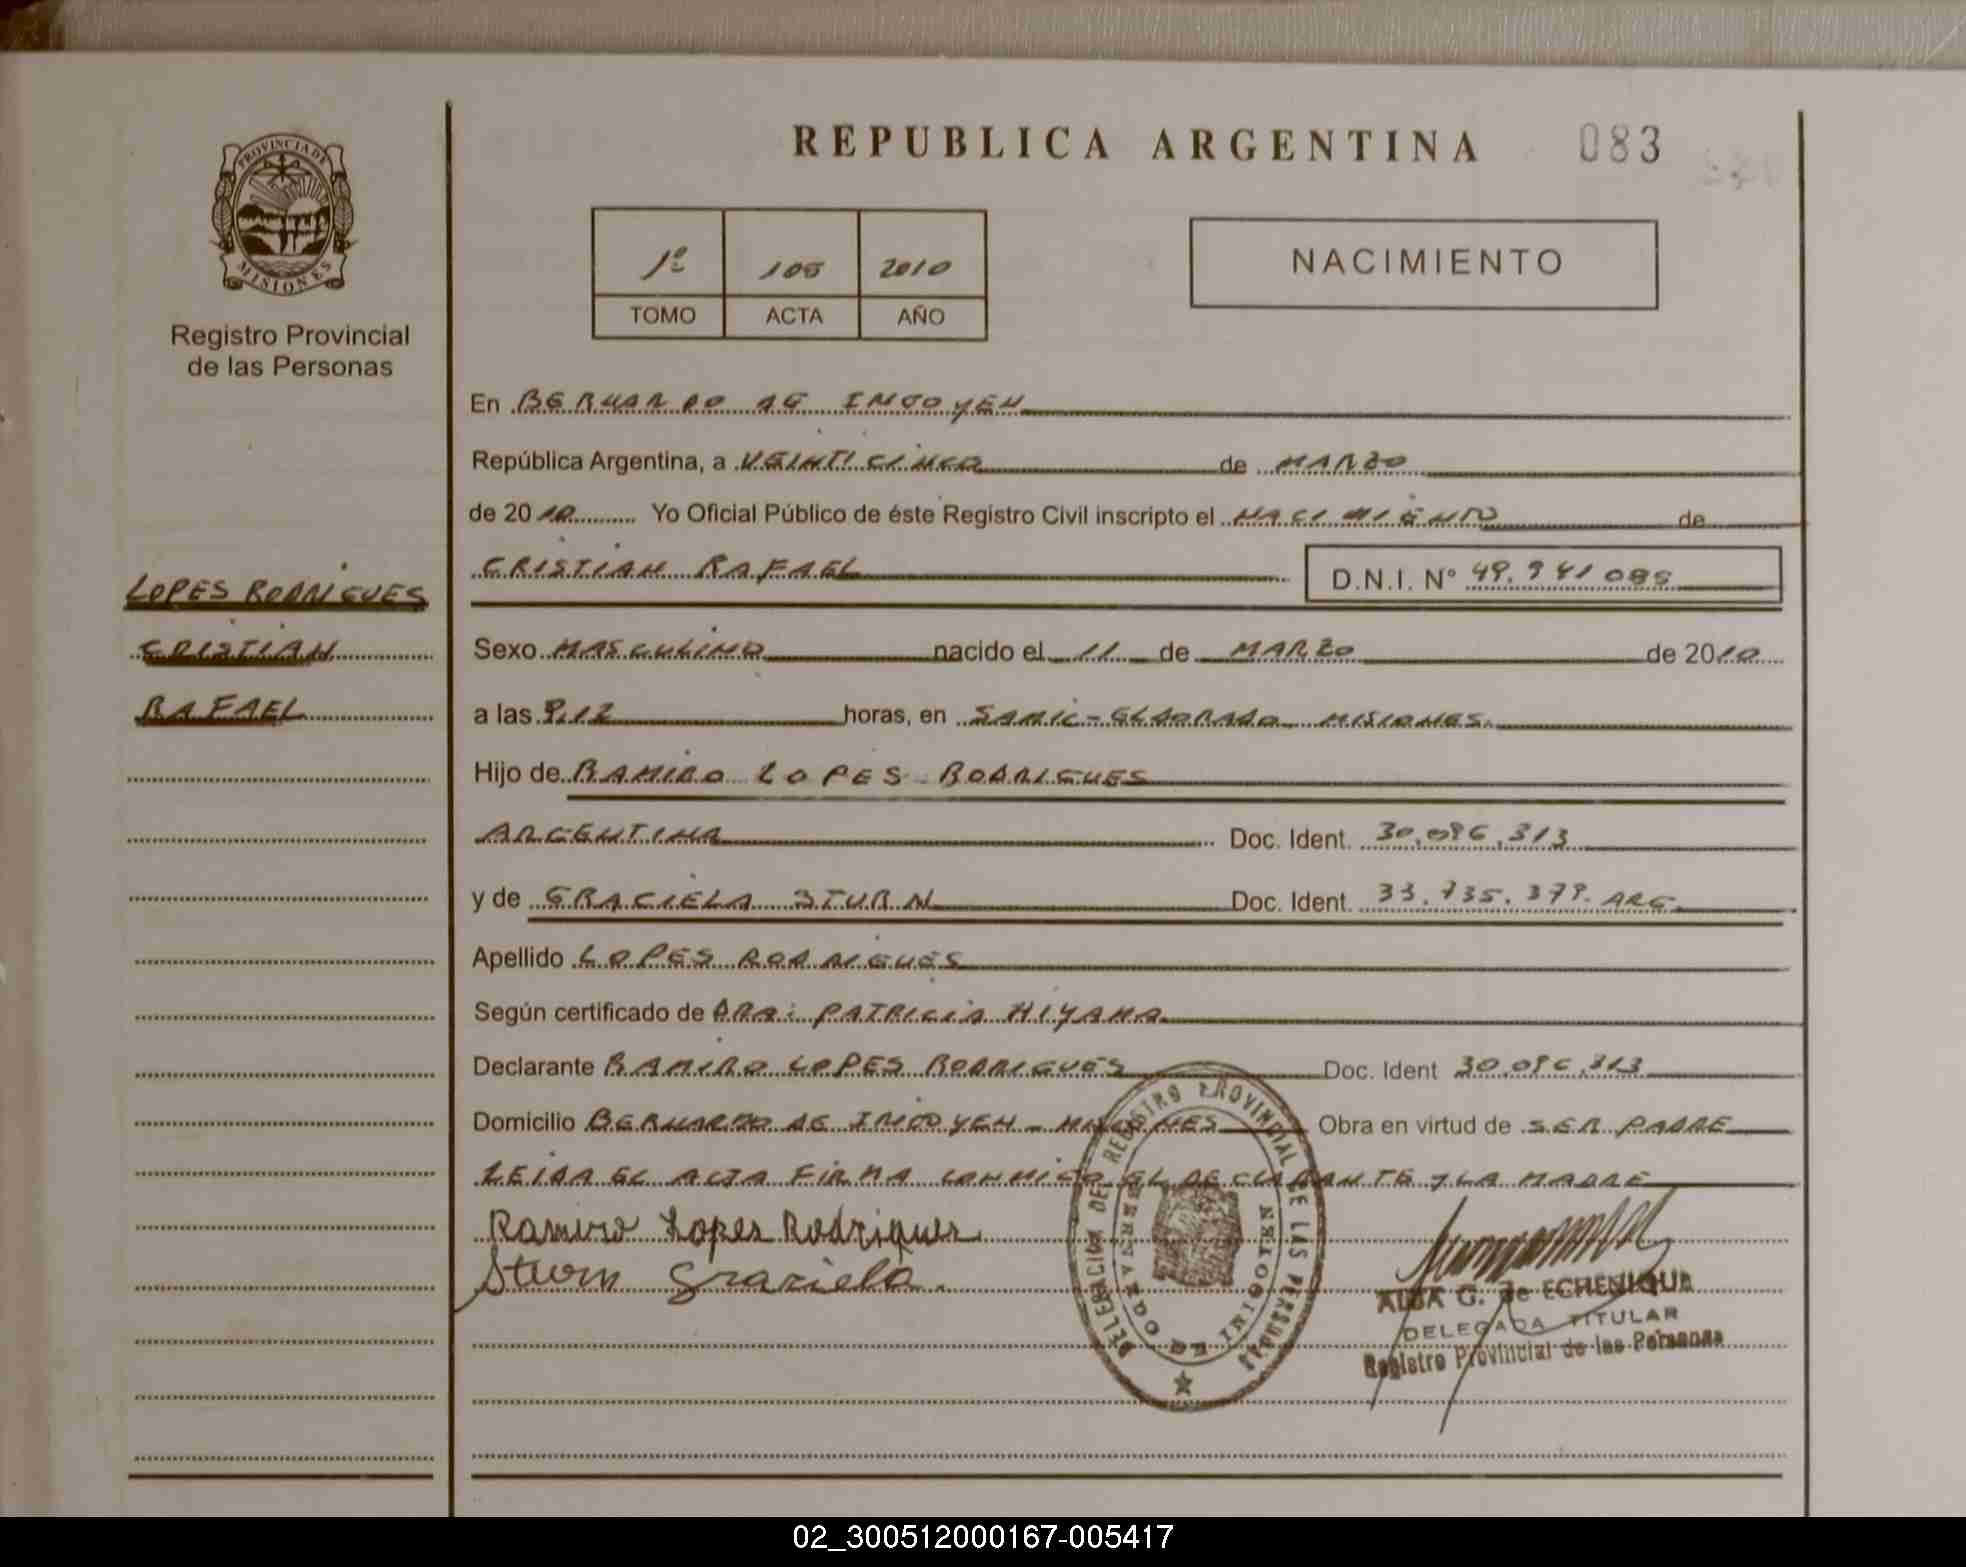 REPUBLICA ARGENTINA 083
PROVINCIA DE
MISIONES
Registro Provincial
de las Personas
1º 105 2010
TOMO ACTA AÑO
NACIMIENTO
En BERNARDO DE IRIGOYEN
República Argentina, a VEINTICINCO de MARZO
de 2010 Yo Oficial Público de éste Registro Civil inscripto el NACIMIENTO de
CRISTIAN RAFAEL D.N.I. Nº 49.941 085
LOPES RODRIGUES
CRISTIAN
RAFAEL
Sexo MASCULINO nacido el 11 de MARZO de 2010
a las 9.12 horas, en SAMIC - ELDORADO MISIONES.
Hijo de RAMIRO LOPES RODRIGUES
ARGENTINA Doc. Ident. 30.096.313
y de GRACIELA STURN Doc. Ident. 33.735.379. ARG.
Apellido LOPES RODRIGUES
Según certificado de DRA: PATRICIA HIYAMA
Declarante RAMIRO LOPES RODRIGUES Doc. Ident 30.096.313
Domicilio BERNARDO DE IRIGOYEN - MISIONES Obra en virtud de SER PADRE
LEIDA EL ACTA FIRMA CONMIGO EL DECLARANTE Y LA MADRE
Ramiro Lopes Rodrigues
Sturn Graciela.
DELEGACION DEL REGISTRO PROVINCIAL DE LAS PERSONAS
BERNARDO DE IRIGOYEN
ALBA G. de ECHENIQUE
DELEGADA TITULAR
Registro Provincial de las Personas
02_300512000167-005417